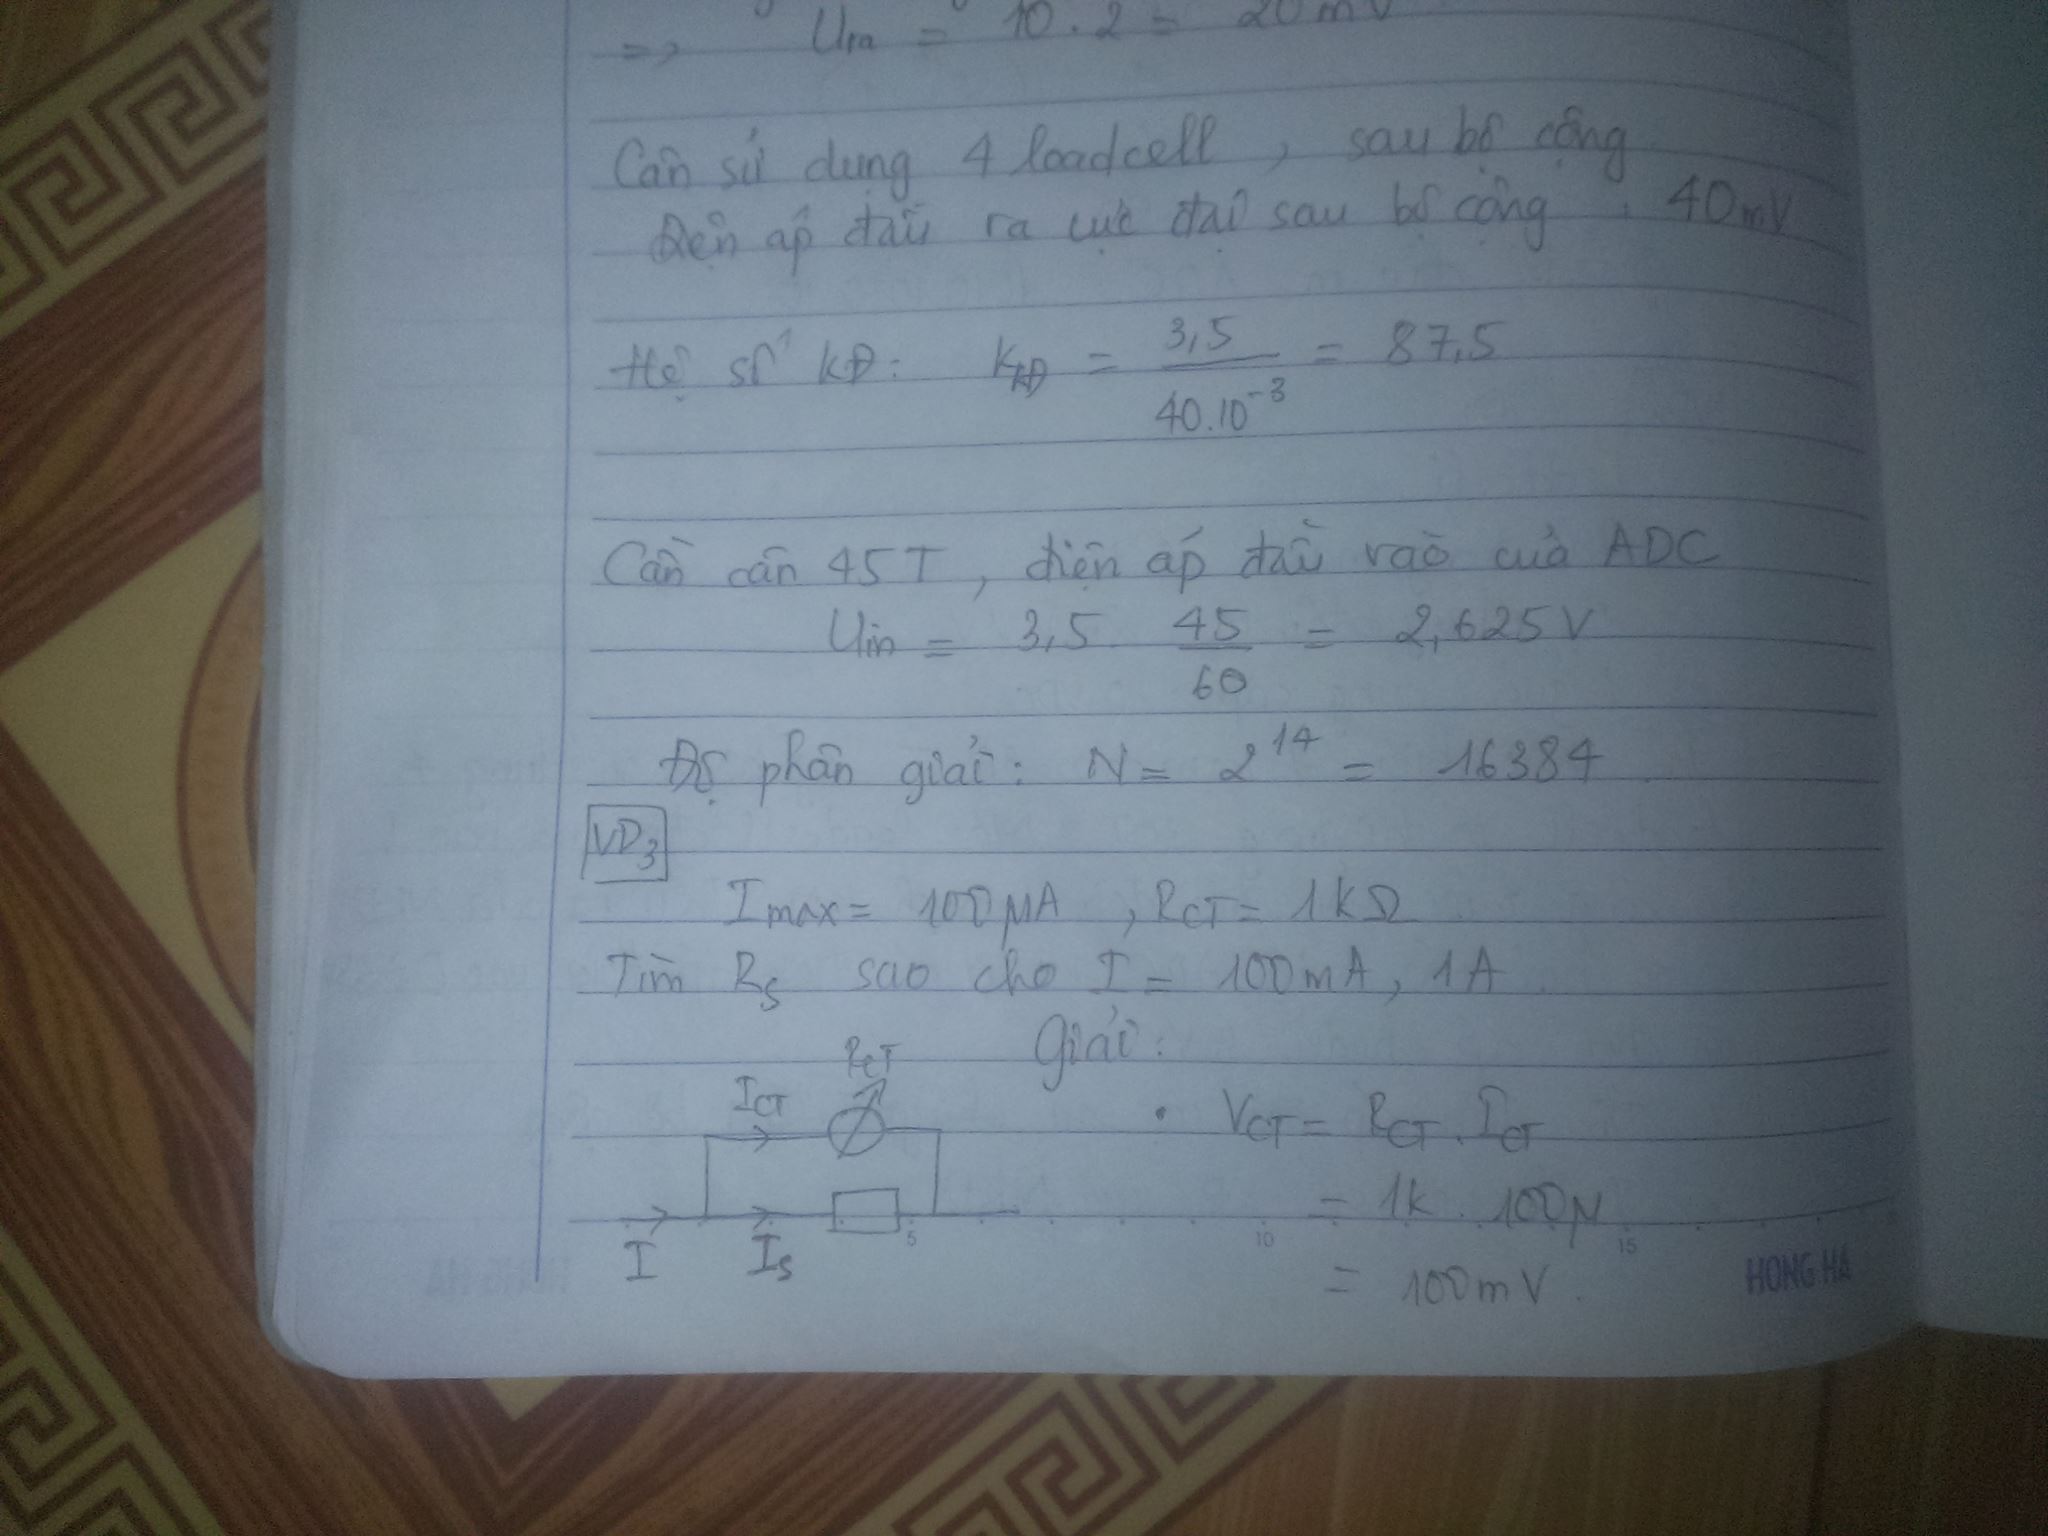 => Ura = 10.2 = 20mV
Cần sử dụng 4 loadcell, sau bộ cộng
Điện áp đầu ra cực đại sau bộ cộng 40mV
Hệ số KĐ: KKĐ = 3,5 / 40.10^-3 = 87,5
Cần cân 45T, điện áp đầu vào của ADC
Uin = 3,5 . 45/60 = 2,625V
Độ phân giải: N = 2^14 = 16384
VD3
Imax = 100μA, RCT = 1kΩ
Tìm Rs sao cho I = 100mA, 1A.
Giải:
RCT
ICT
• VCT = RCT . ICT
= 1k . 100μ
I Is
5 10 15
= 100mV.
HONG HA